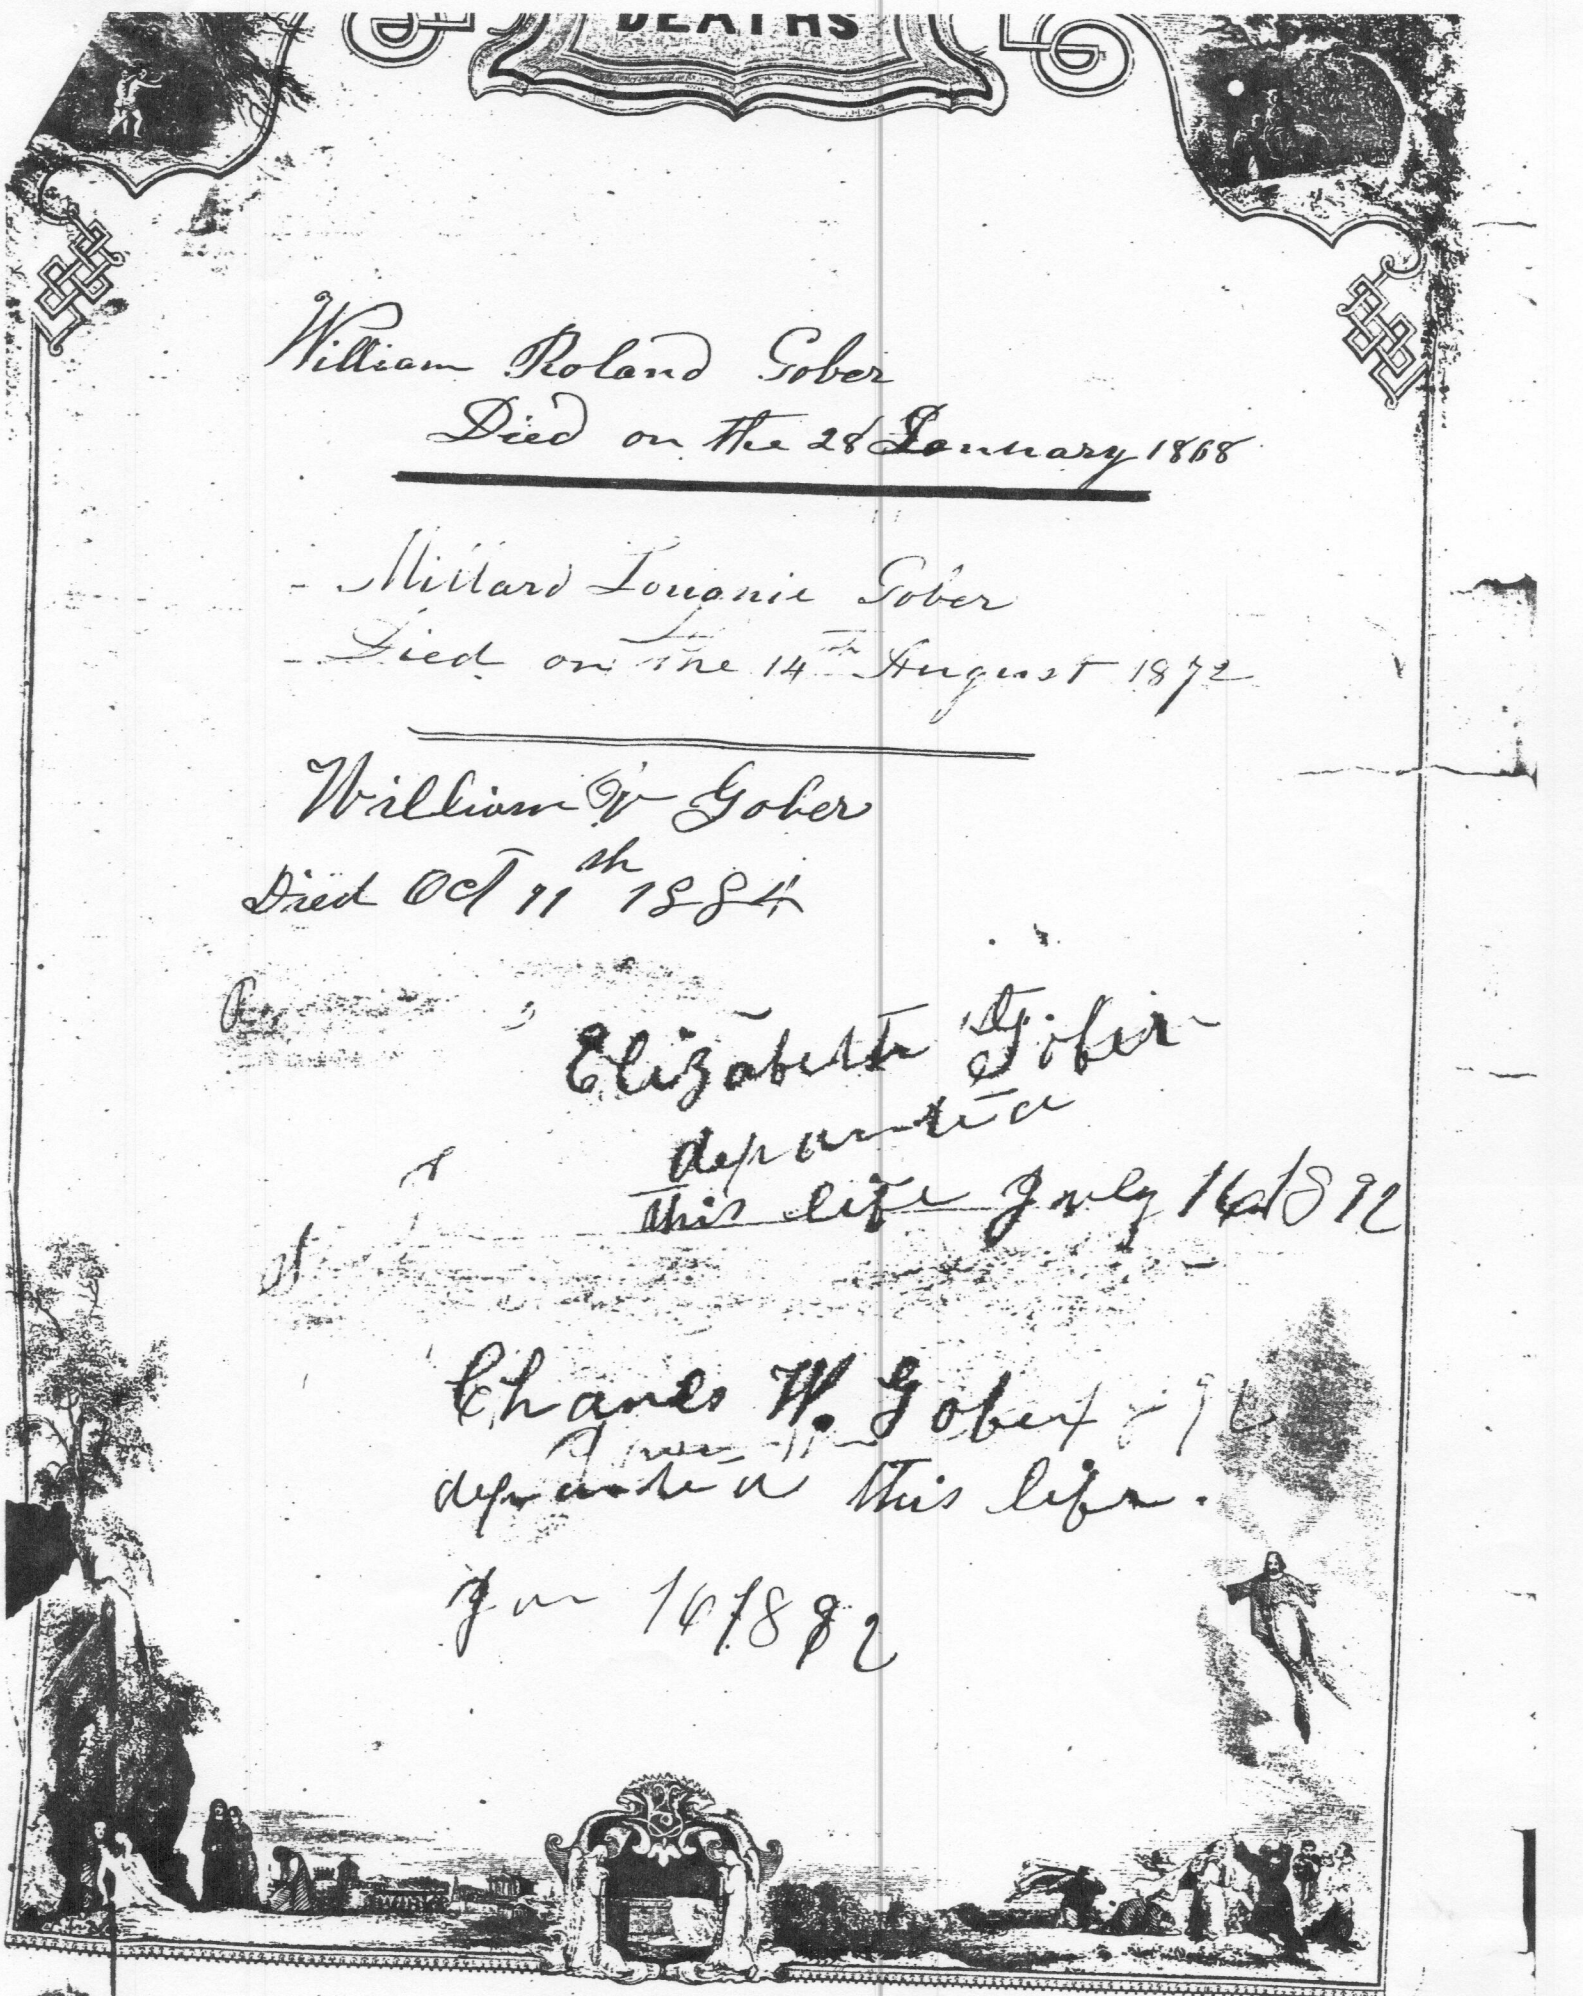 DEATHS
William Roland Gober
Died on the 28 January 1868
Millard Gober
Died on the 14th August 1872
William Gober
Died Oct 11th 1884
Elizabeth Gober
departed
this life July 1892
Charles W. Gober
departed this life.
Jan 16 1892